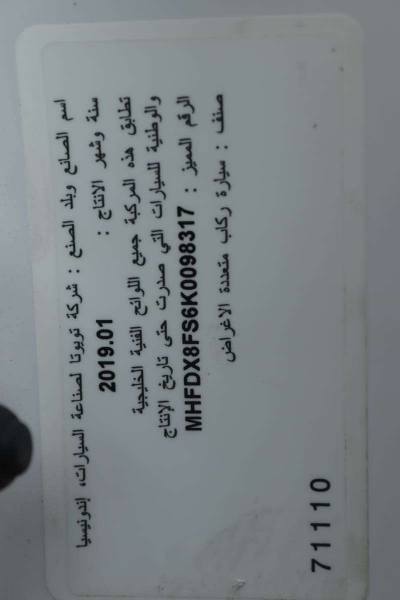 اسم الصانع وبلد الصنع : شركة تويوتا لصناعة السيارات، إندونيسيا
سنة وشهر الانتاج : 2019.01
تطابق هذه المركبة جميع اللوائح الفنية الخليجية
والوطنية للسيارات التي صدرت حتى تاريخ الإنتاج
الرقم المميز : MHFDX8FS6K0098317
صنف : سيارة ركاب متعددة الاغراض
71110